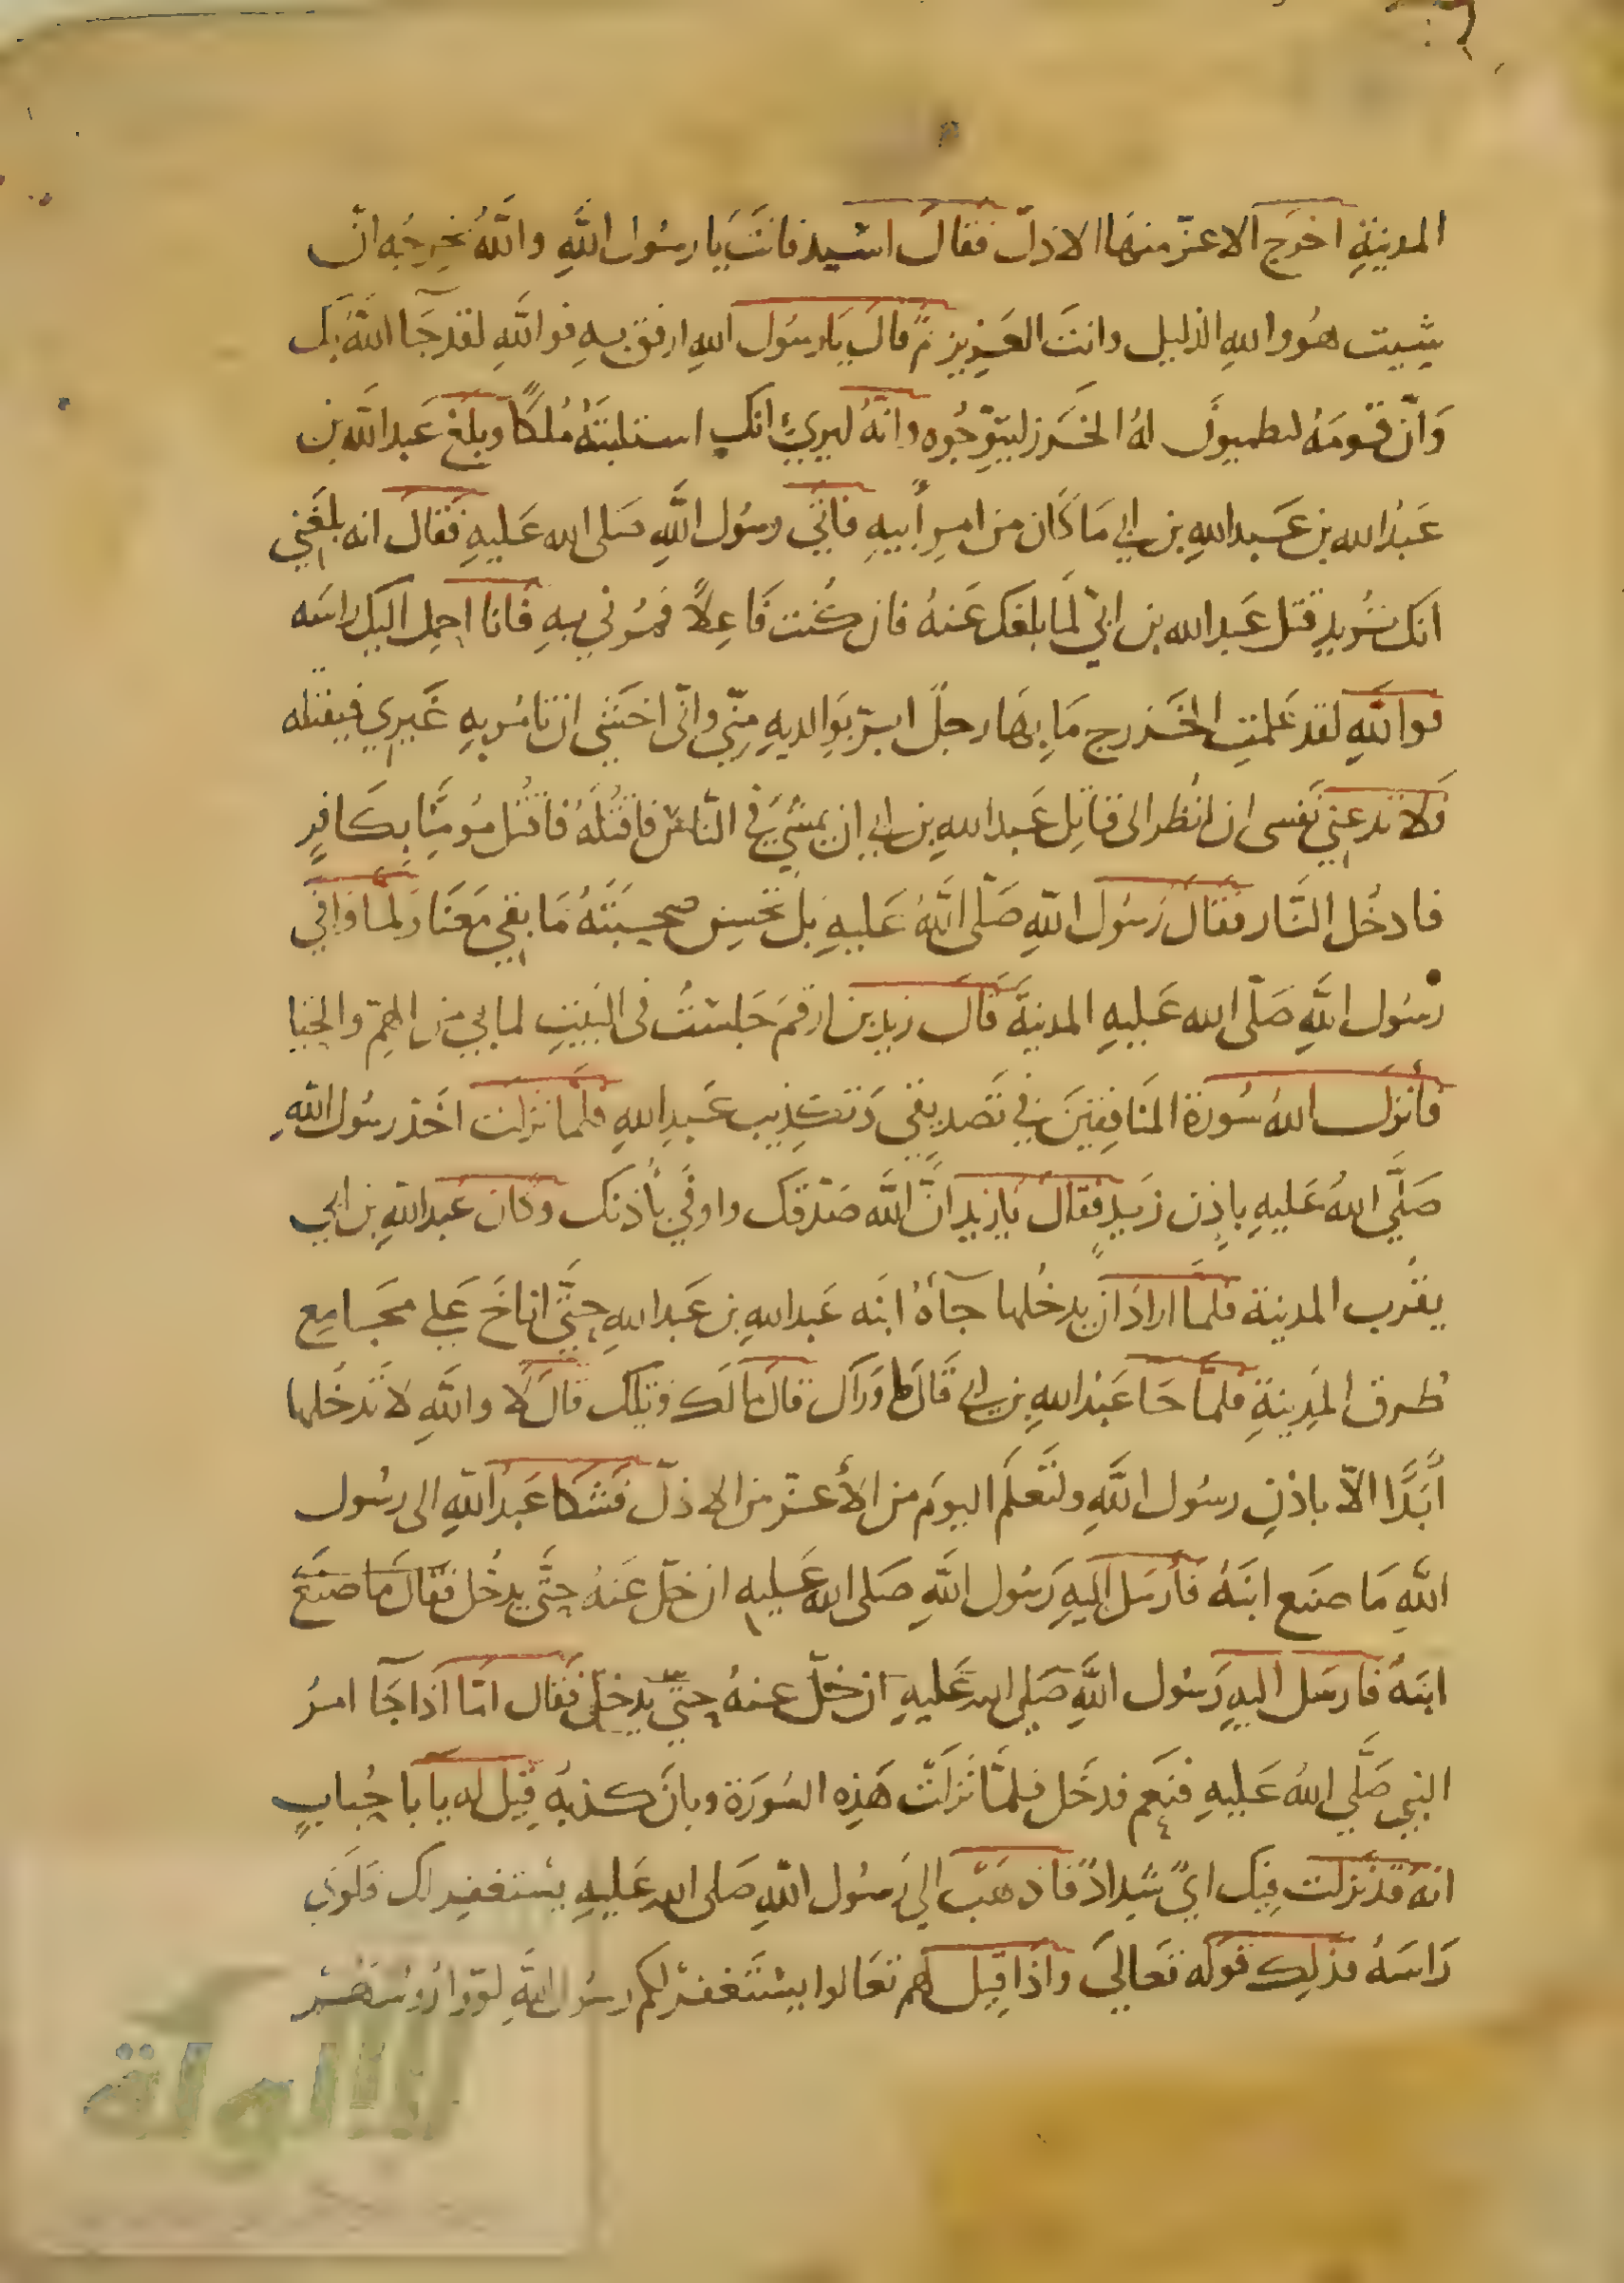 المدينةِ اخرَج الاعزّ منهَا الاذلّ فقالَ اسَيد فانتَ يا رسُول اللَّهِ واللَّهُ تخرجُه انّ
شِيت هُو واللهِ الذليل وانتَ العَزِيز ثمّ قالَ يَا رسُول اللهِ ارفق بهِ فواللَّهِ لقد جَآ اللَّهُ بكَ
وَانّ قومَهُ لينظمونَ لهُ الخَرز ليتوّجُوه وانّهُ ليرىَ انك استلبتَهُ مُلكًا وبلغ عَبد اللَّه بن
عَبدُ الله بن عَبد اللهِ بن ابي مَا كَان من امرِ أَبيهِ فاتَى رسُول اللَّهِ صَلى الله عَليهِ فقَالَ انه بلغَني
انك تُريد قتل عَبد الله بن ابيّ لمَا بلغك عَنهُ فان كُنت فَاعِلاً فمُرني بهِ فانا احمِل اليك راسَه
فواللَّهِ لقد عَلمتِ الخَزرج مَا بِهَا رجلٌ ابرّ بوَالديهِ منِّي وانّى اخشَى ان تامُر بهِ غَيري فيقتله
فَلا تدعني نَفسى ان انظر الى قاتِل عَبد اللهِ بن ابي ان يَمشي في النَّاس فاقتُلَهُ فاقتُل مُومنًا بكَافرٍ
فادخُل النَّار فقالَ رَسُول اللهِ صَلّى اللَّهُ عَليهِ بَل نحسِن صحبَتَهُ مَا بقي مَعَنَا ولما وافي
رسُول اللَّهِ صَلّى الله عَليهِ المدينَةَ قَالَ زيد بن ارقمَ جَلستُ فى البَيتِ لما بي من الهَمّ والحَيا
فأَنزلَ اللهُ سُورة المنَافِقينَ في تَصديقي وَتكذِيب عَبد اللهِ فلمَا نزلت اخذ رسُول اللهِ
صَلَّى اللهُ عَليهِ باذِن زَيدٍ فقالَ يَا زيد انَّ اللَّه صَدقَك واوفَي بأُذنك وكان عَبد اللهِ بن ابي
يقرُب المدينة فلمَّا ارادَ ان يدخُلها جآءَهُ ابنَه عَبد اللهِ بن عَبد اللهِ حتَّى اناخَ عَلي مجَامِع
طُرق المدِينةِ فلمَّا جَا عَبدُ اللهِ بن ابي قَالَ ورَاك قالَ مالَك ويلك قالَ لا واللَّهِ لا تدخُلها
أَبَدًا الاّ باذنِ رسُول اللَّهِ ولتَعلَم اليومَ من الأَعزّ من الاذلّ فَشكا عَبدُ اللهِ الى رسُول
اللَّهِ مَا صَنَع ابنَهُ فأرسَل اليهِ رَسُول اللَّهِ صَلى الله عَليهِ ان خلّ عَنهُ حتَّى يدخُل فقالَ مَا صنَعَ
ابنَهُ فارسَل اليهِ رَسُول اللَّهِ صَلى الله عَليهِ ان خلّ عنهُ حتّي يدخل فقَال امّا اذا جَآ امرُ
النبي صَلَّي اللهُ عَليهِ فنَعَم فدخَل فلمَّا نزلَت هَذِه السُورَة وبانَ كذبهُ قِيل له يا با حُبابٍ
انهُ قد نزلت فِيك ايٌ شِدادٌ فاذهَب الي رَسُول اللَّهِ صَلى الله عَليهِ يستغفِر لك فلَوَى
رَاسَهُ فذلِك قولُه تعَاليَ واذا قِيل لهم تعَالوا يستَغفر لكم رسُول اللهِ لوّوا رُوسَهُم